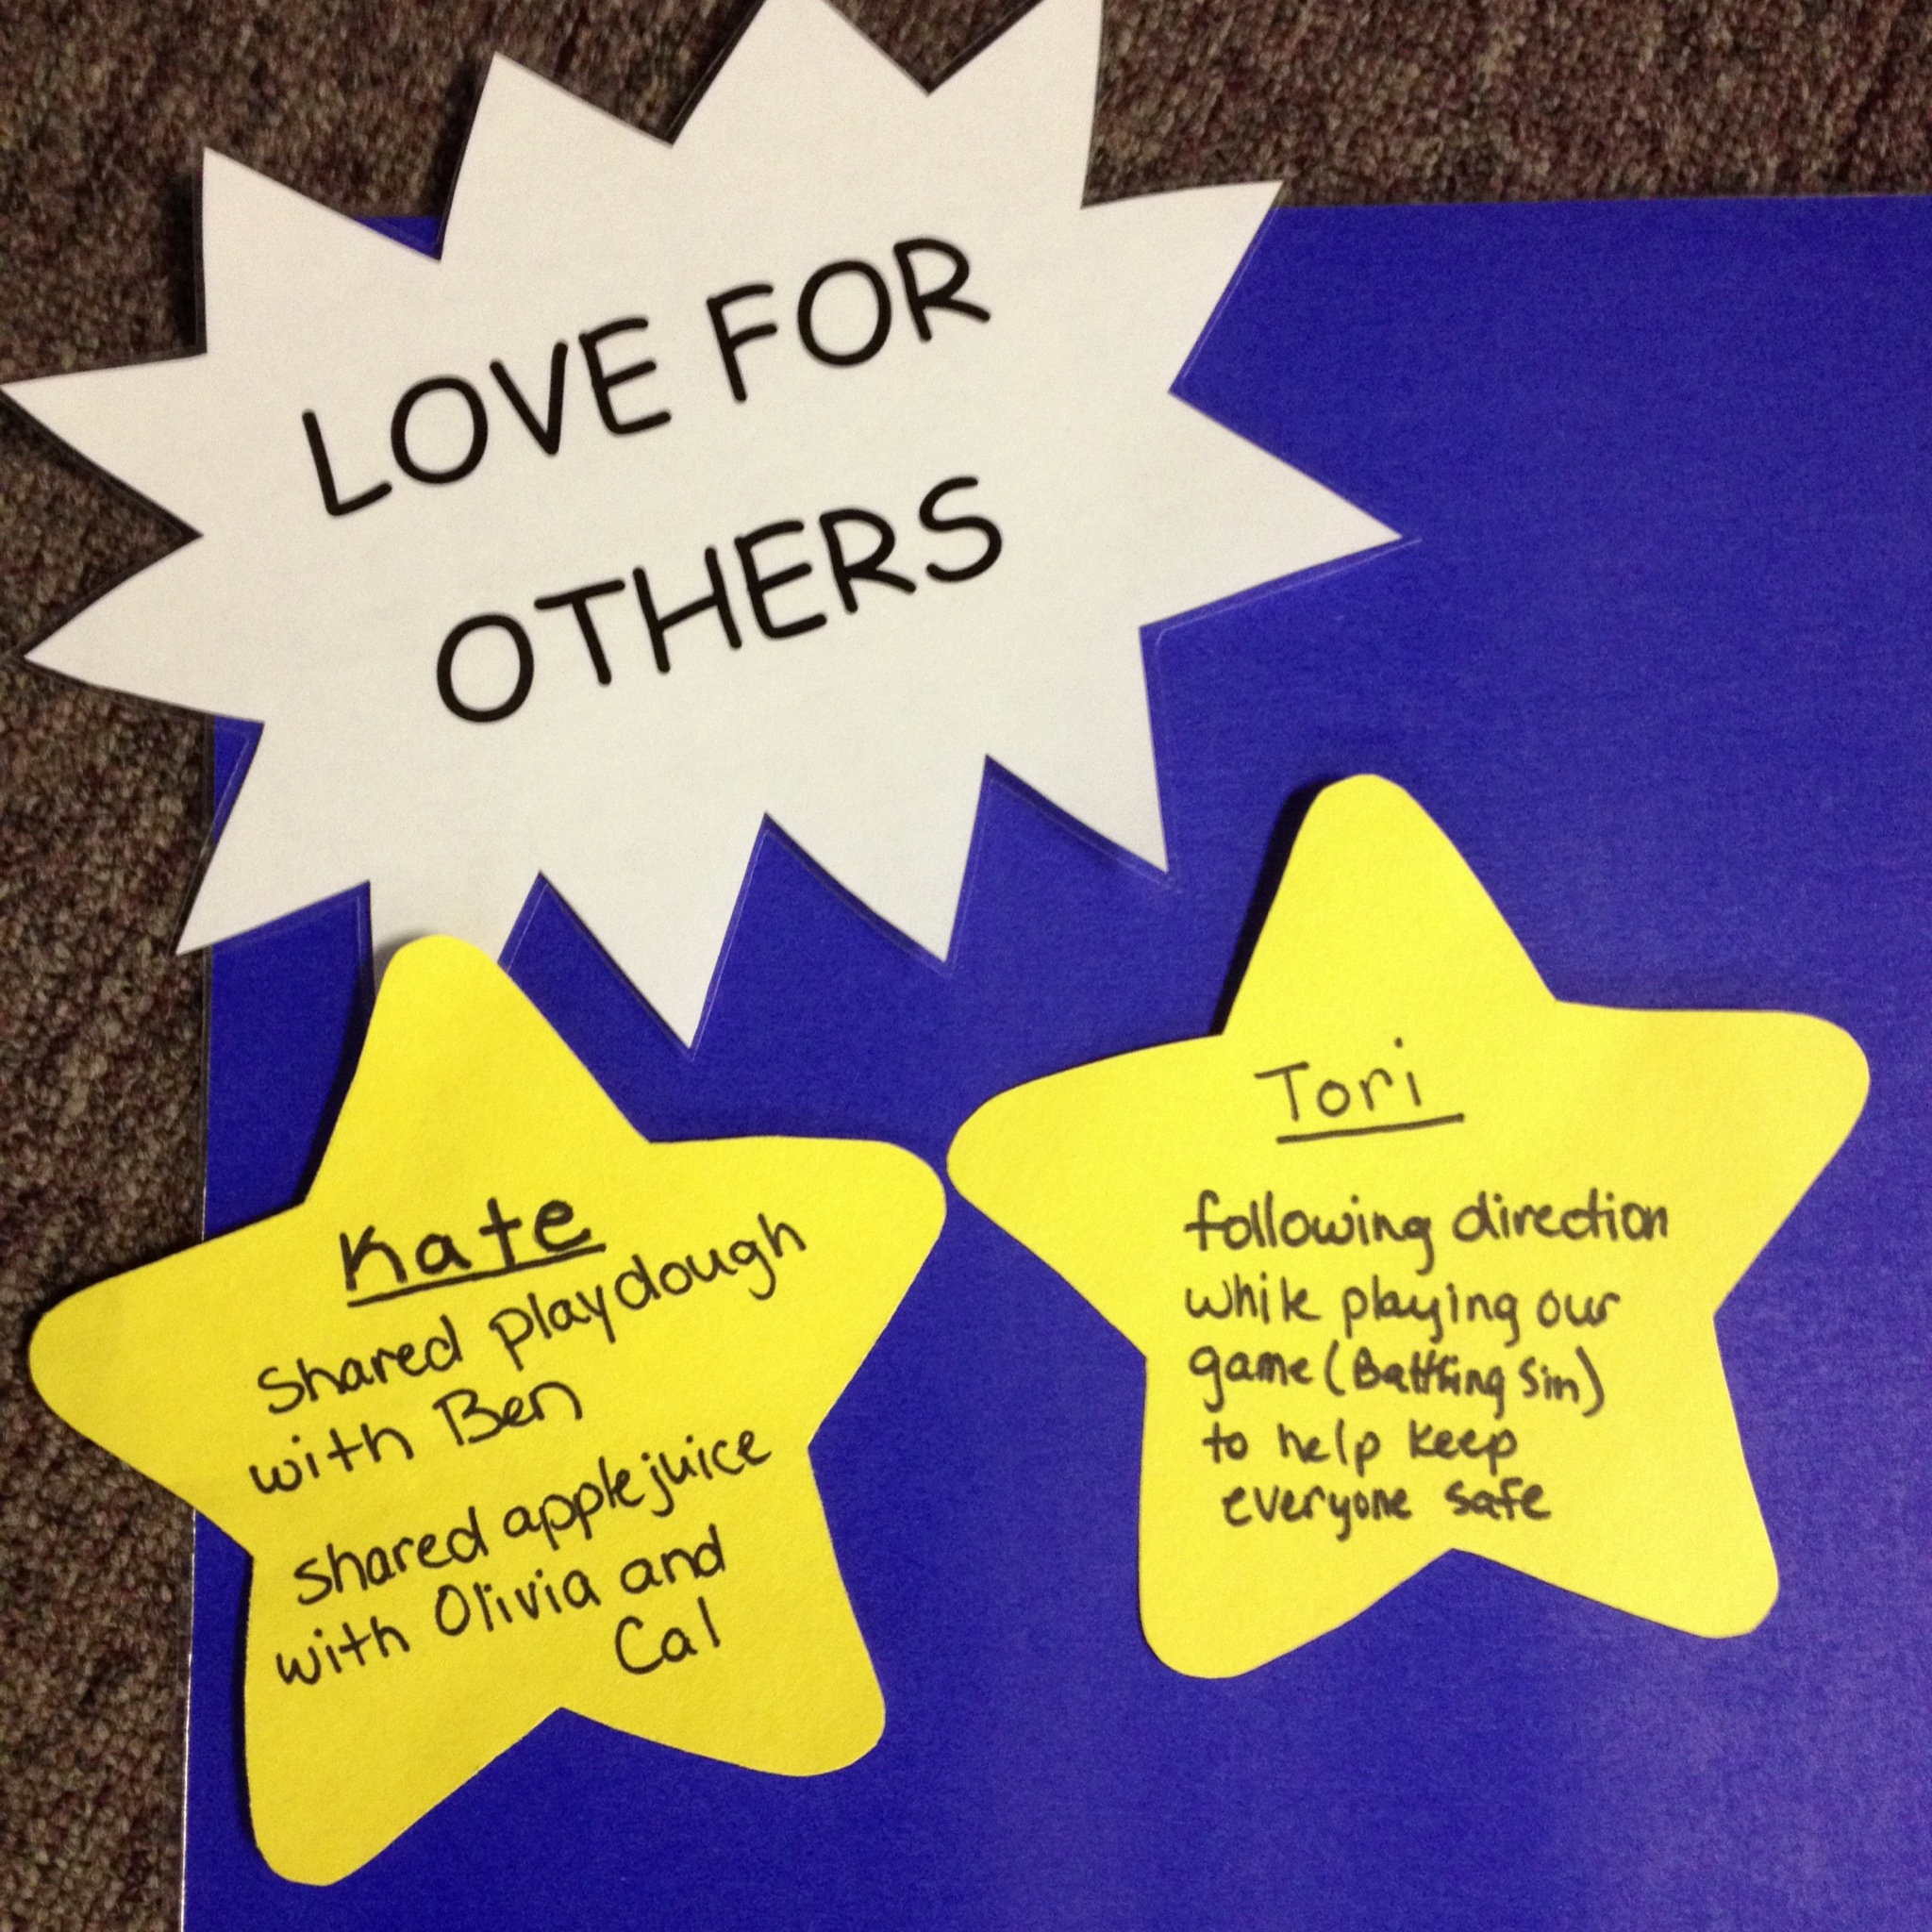 LOVE FOR
OTHERS
Kate
Shared playdough
with Ben
shared applejuice
with Olivia and
Cal
Tori
following direction
while playing our
game (Battling Sin)
to help keep
everyone safe